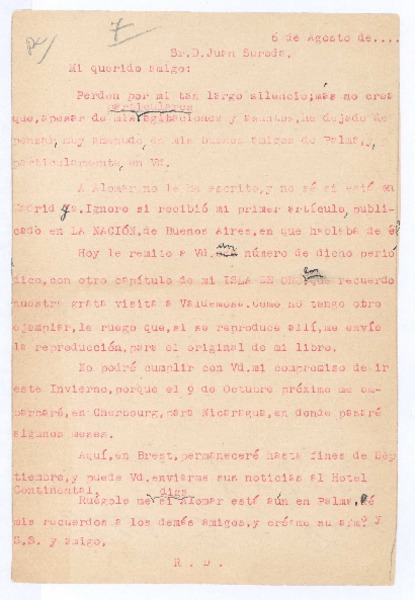 7
6 de Agosto de....
Sr.D.Juan Sureda.
Mi querido amigo:
Perdon por mi tan largo silencio;mas no crea
particulares
que,apesar de mis agitaciones y asuntos,he dejado de
pensar,muy amenudo,en mis buenos amigos de Palma,y
particularmente,en Vd.
A Alomar no le he escrito,y no sé si está en
Madrid ya.Ignoro si recibió mi primer artículo,publi-
cado en LA NACIÓN,de Buenos Aires,en que hablaba de él
Hoy le remito a Vd. un número de dicho perió
dico,con otro capítulo de mi ISLA DE ORO, en que recuerdo
nuestra grata visita a Valdemosa.Como no tengo otro
ejemplar,le ruego que,si se reproduce allí,me envíe
la reproducción,para el original de mi libro.
No podré cumplir con Vd.mi compromiso de ir
este Invierno,porque el 9 de Octubre próximo me em-
barcaré,en Cherbourg,para Nicaragua,en donde pasaré
algunos meses.
Aquí,en Brest,permaneceré hasta fines de Sep
tiembre,y puede Vd.enviarme sus noticias al Hotel
Continental.
diga
Ruégole me si Alomar está aún en Palma,dé
mis recuerdos a los demás amigos,y créame su afmo. y
S.S. y amigo,
R. D.